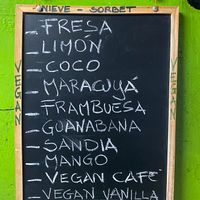 NIEVE - SORBET
VEGAN
VEGAN
FRESA
LIMÓN
COCO
MARACUYÁ
FRAMBUESA
GUANABANA
SANDIA
MANGO
VEGAN CAFÉ
VEGAN VANILLA